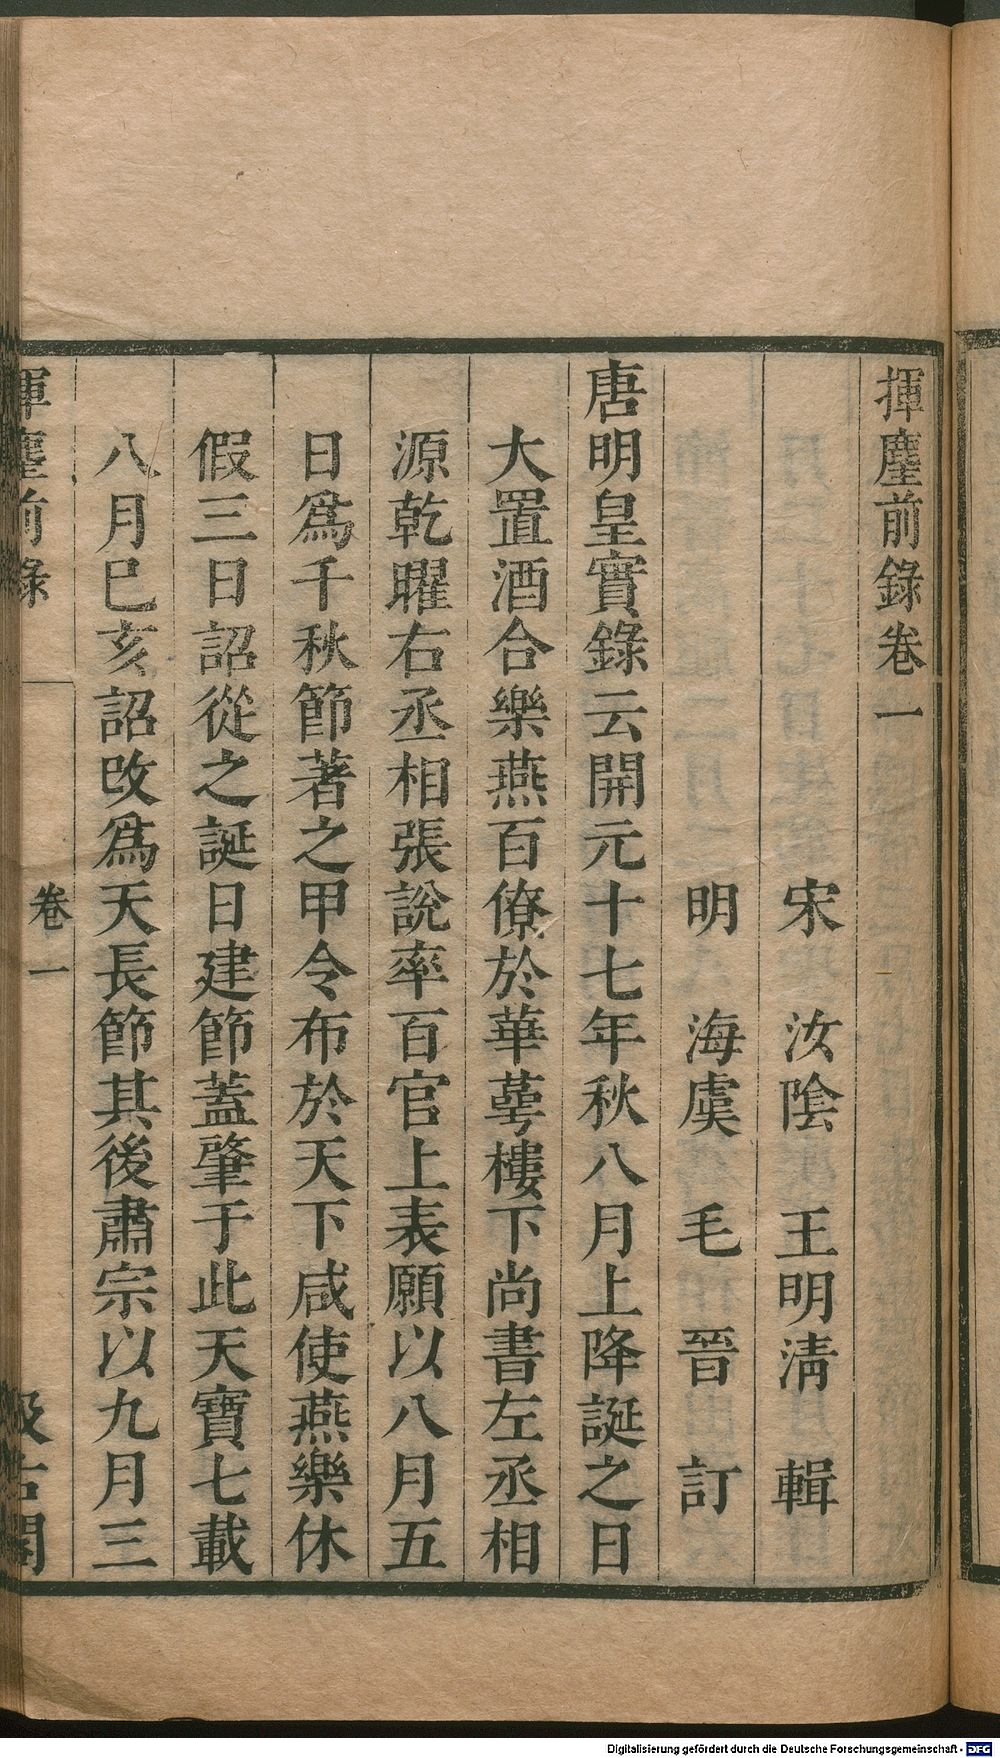 揮麈前錄卷一
宋 汝陰 王明淸 輯
明 海虞 毛晉 訂
唐明皇實錄云開元十七年秋八月上降誕之日
大置酒合樂燕百僚於華萼樓下尚書左丞相
源乾曜右丞相張說率百官上表願以八月五
日爲千秋節著之甲令布於天下咸使燕樂休
假三日詔從之誕日建節蓋肇于此天寶七載
八月已亥詔改爲天長節其後肅宗以九月三
揮麈前錄 卷一 汲古閣
Digitalisierung gefördert durch die Deutsche Forschungsgemeinschaft - DFG